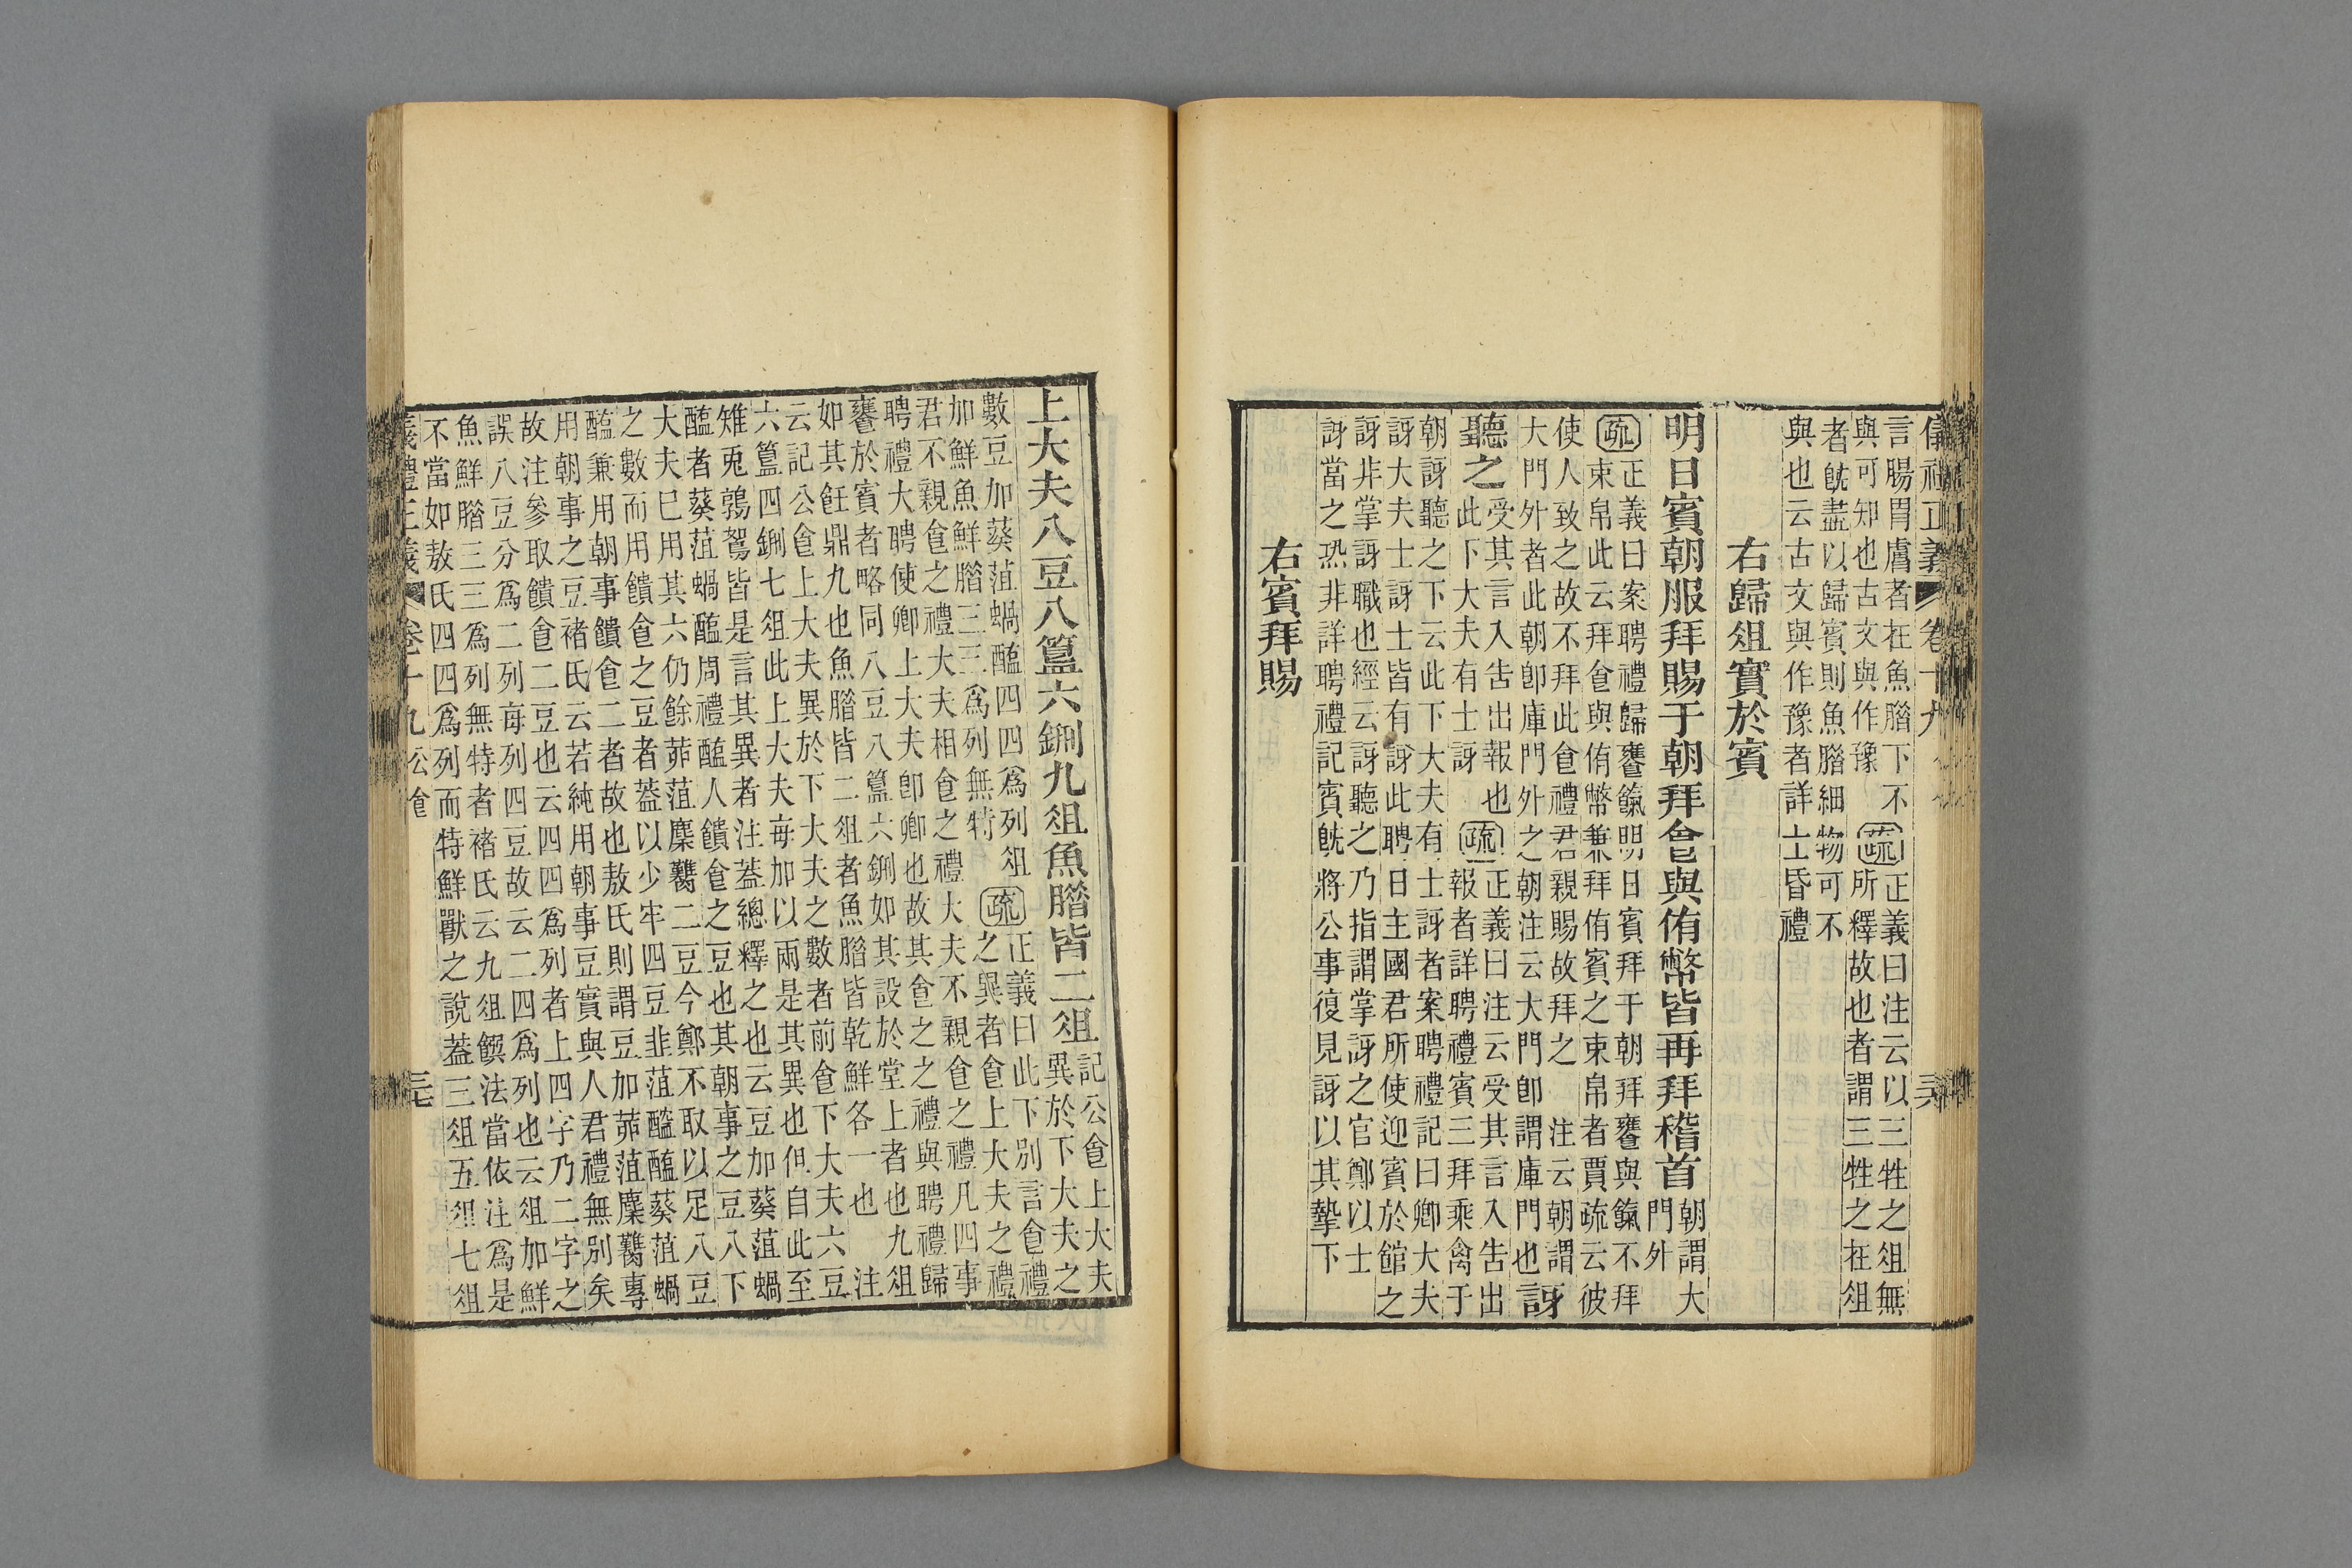 儀禮正義　卷十九　三六
言腸胃膚者在魚腊下不
與可知也古文與作豫
疏
正義曰注云以三牲之俎無
所釋故也者謂三牲之在俎
者旣盡以歸賓則魚腊細物可不
與也云古文與作豫者詳士昏禮
右歸俎實於賓
明日賓朝服拜賜于朝拜食與侑幣皆再拜稽首
朝謂大
門外
疏
正義曰案聘禮歸饔餼明日賓拜于朝拜饔與餼不拜
束帛此云拜食與侑幣兼拜侑賓之束帛者賈疏云彼
使人致之故不拜此食禮君親賜故拜之　注云朝謂
大門外者此朝卽庫門外之朝注云大門卽謂庫門也
訝
聽之
受其言入告出報也
此下大夫有士訝
疏
正義曰注云受其言入告出
報者詳聘禮賓三拜乘禽于
朝訝聽之下云此下大夫有士訝者案聘禮記曰卿大夫
訝大夫士訝士皆有訝此聘日主國君所使迎賓於館之
訝非掌訝職也經云訝聽之乃指謂掌訝之官鄭以士
訝當之恐非詳聘禮記賓旣將公事復見訝以其摯下
右賓拜賜
上大夫八豆八簋六鉶九俎魚腊皆二俎
記公食上大夫
異於下大夫之
數豆加葵菹蝸醢四四爲列俎
加鮮魚鮮腊三三爲列無特
疏
正義曰此下別言食禮
之異者食上大夫之禮
君不親食之禮大夫相食之禮大夫不親食之禮凡四事
聘禮大聘使卿上大夫卽卿也故其食之之禮與聘禮歸
饔於賓者略同八豆八簋六鉶如其設於堂上者也九俎
如其飪鼎九也魚腊皆二俎者魚腊皆乾鮮各一也　注
云記公食上大夫異於下大夫之數者前食下大夫六豆
六簋四鉶七俎此上大夫每加以兩是其異也但自此至
雉兎鶉鴽皆是言其異者注蓋總釋之也云豆加葵菹蝸
醢者葵菹蝸醢周禮醢人饋食之豆也其朝事之豆八下
大夫已用其六仍餘茆菹麋臡二豆今鄭不取以足八豆
之數而用饋食之豆者蓋以少牢四豆韭菹醓醢葵菹蝸
醢兼用朝事饋食二者故也敖氏則謂豆加茆菹麋臡專
用朝事之豆褚氏云若純用朝事豆實與人君禮無別矣
故注參取饋食二豆也云四四爲列者上四字乃二字之
誤八豆分爲二列每列四豆故云二四爲列也云俎加鮮
魚鮮腊三三爲列無特者褚氏云九俎饌法當依注爲是
不當如敖氏四四爲列而特鮮獸之說蓋三俎五俎七俎
義禮正義　卷十九公食　三七